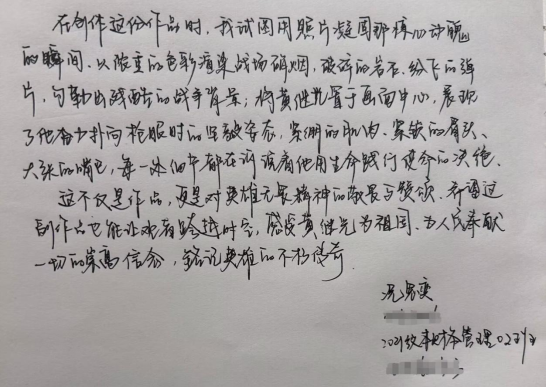 在创作这份作品时，我试图用照片凝固那惊心动魄
的瞬间。以浓重的色彩渲染战场硝烟，破碎的岩石、纷飞的弹
片，勾勒出残酷的战争背景；将黄继光置于画面中心，展现
了他奋力扑向枪眼时的坚毅姿态，紧绷的肌肉、紧皱的眉头、
大张的嘴巴，每一处细节都在诉说着他用生命践行使命的决绝。
这不仅是作品，更是对英雄无畏精神的致敬与赞颂。希望这
副作品也能让观者跨越时空，感受黄继光为祖国、为人民奉献
一切的崇高信念，铭记英雄的不朽传奇。
2021级
管理02